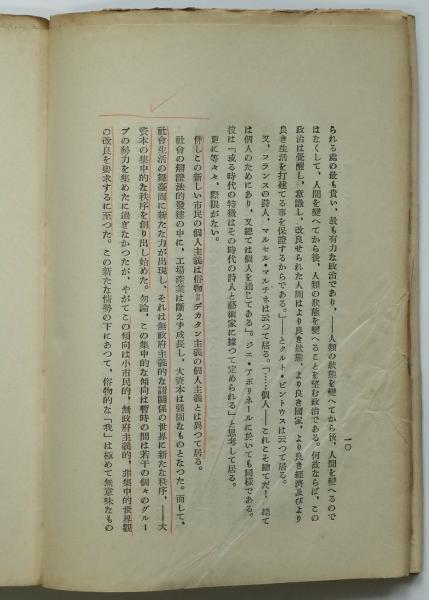 一〇
られる處の最も貴い、最も有力な政治であり、――人類の狀態を變へてから後、人間を變へるので
はなくして、人間を變へてから後、人類の狀態を變へることを望む政治である。何故ならば、この
政治は覺醒し、意識し、改良せられた人間はより良き狀態、より良き國家、より良き經濟及びより
良き生活を打建てる事を保證するからである。」――とクルト・ピントウスは云つて居る。
又、フランスの詩人、マルセル・マルチネは云つて居る。「……個人――これこそ總てだ！ 總て
は個人のためにあり、又總ては個人を通じてある」。ジエ・アポリネールに於いても同樣である。
彼は「或る時代の特徵はその時代の詩人と藝術家に據つて定められる」と思考して居る。
更に等々々、際限がない。
併しこの新しい市民の個人主義は俗物＝デカタン主義の個人主義とは異つて居る。
社會の辯證法的發達の中に、工場產業は斷えず成長し、大資本は强固なものとなつた。而して、
社會生活の舞臺面に新たな力が出現し、それは無政府主義的な諸關係の世界に新たな秩序、――大
資本の集中的な秩序を創り出し始めた。勿論、この集中的な傾向は暫時の間は若干の個々のグルー
プの勢力を集めたに過ぎなかつたが、やがてこの傾向は小市民的、無政府主義的、非集中的世界觀
の改良を要求するに至つた。この新たな情勢の下にあつて、俗物的な「我」は極めて無意味なもの